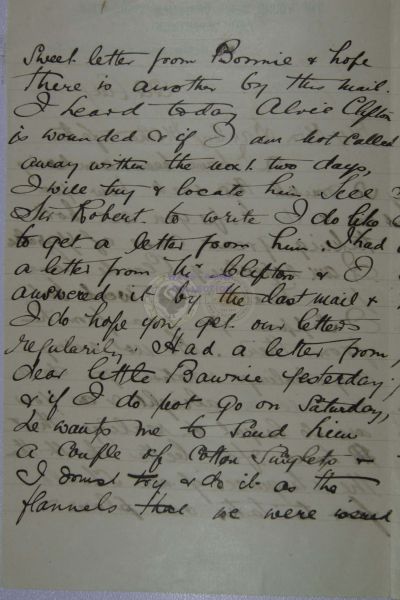 Sweet letter from Bonnie & hope
there is another by this mail.
I heard today Alvie Clifton
is wounded & if I am not called
away within the next two days,
I will try & locate him. Tell
Sir Robert to write I do like
to get a letter from him. I had
a letter from Clifton & I
answered it by the last mail &
I do hope you get our letters
regularily. Had a letter from
dear little Bawnie yesterday,
& if I do not go on Saturday,
he wants me to send him
a couple of cotton singlets &
I must try & do it as the
flannels that we were issued